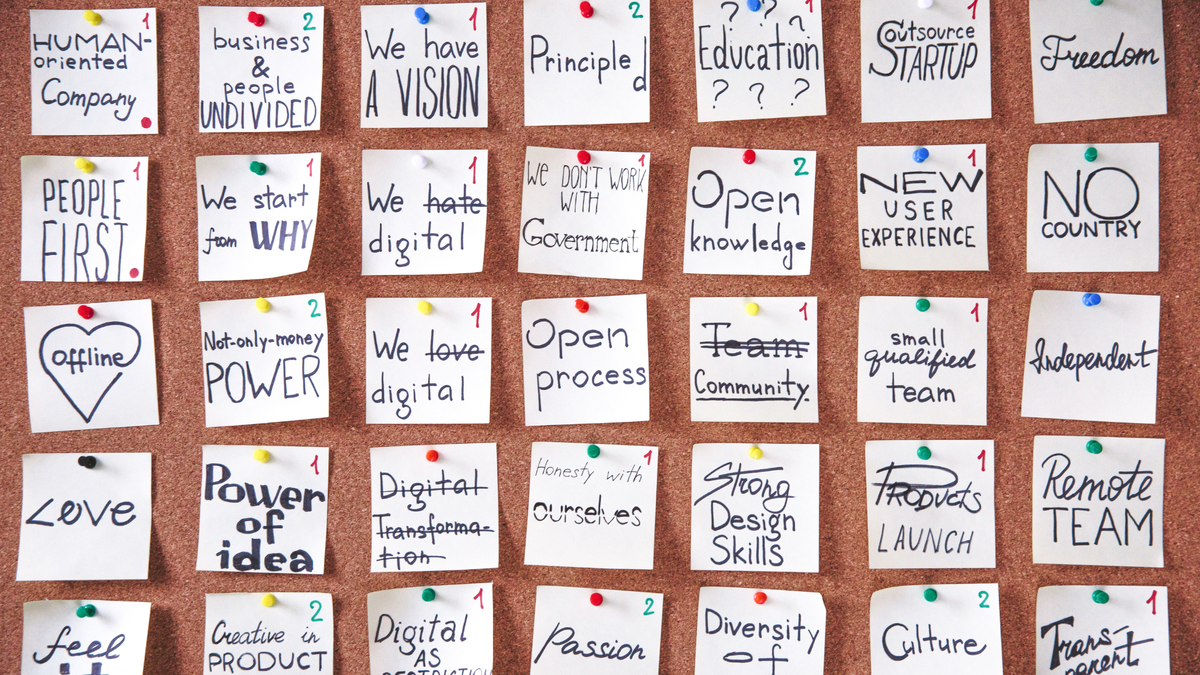 1
HUMAN-
oriented
Company
2
business
&
people
UNDIVIDED
1
We have
A VISION
2
Principled
1
? ? ?
Education
? ? ?
1
Outsource
STARTUP
Freedom
1
PEOPLE
FIRST
1
We start
from WHY
1
We hate
digital
1
We DON'T WORK
WITH
Government
2
Open
knowledge
1
NEW
USER
EXPERIENCE
NO
COUNTRY
offline
2
Not-only-money
POWER
1
We love
digital
Open
process
1
Team
Community
1
small
qualified
team
Independent
Love
1
Power
of
idea
Digital
Transforma-
tion
1
Honesty with
ourselves
Strong
Design
Skills
1
Products
LAUNCH
Remote
TEAM
feel
it
2
Creative in
PRODUCT
1
Digital
AS
2
Passion
Diversity
of
2
Culture
1
Trans-
parent